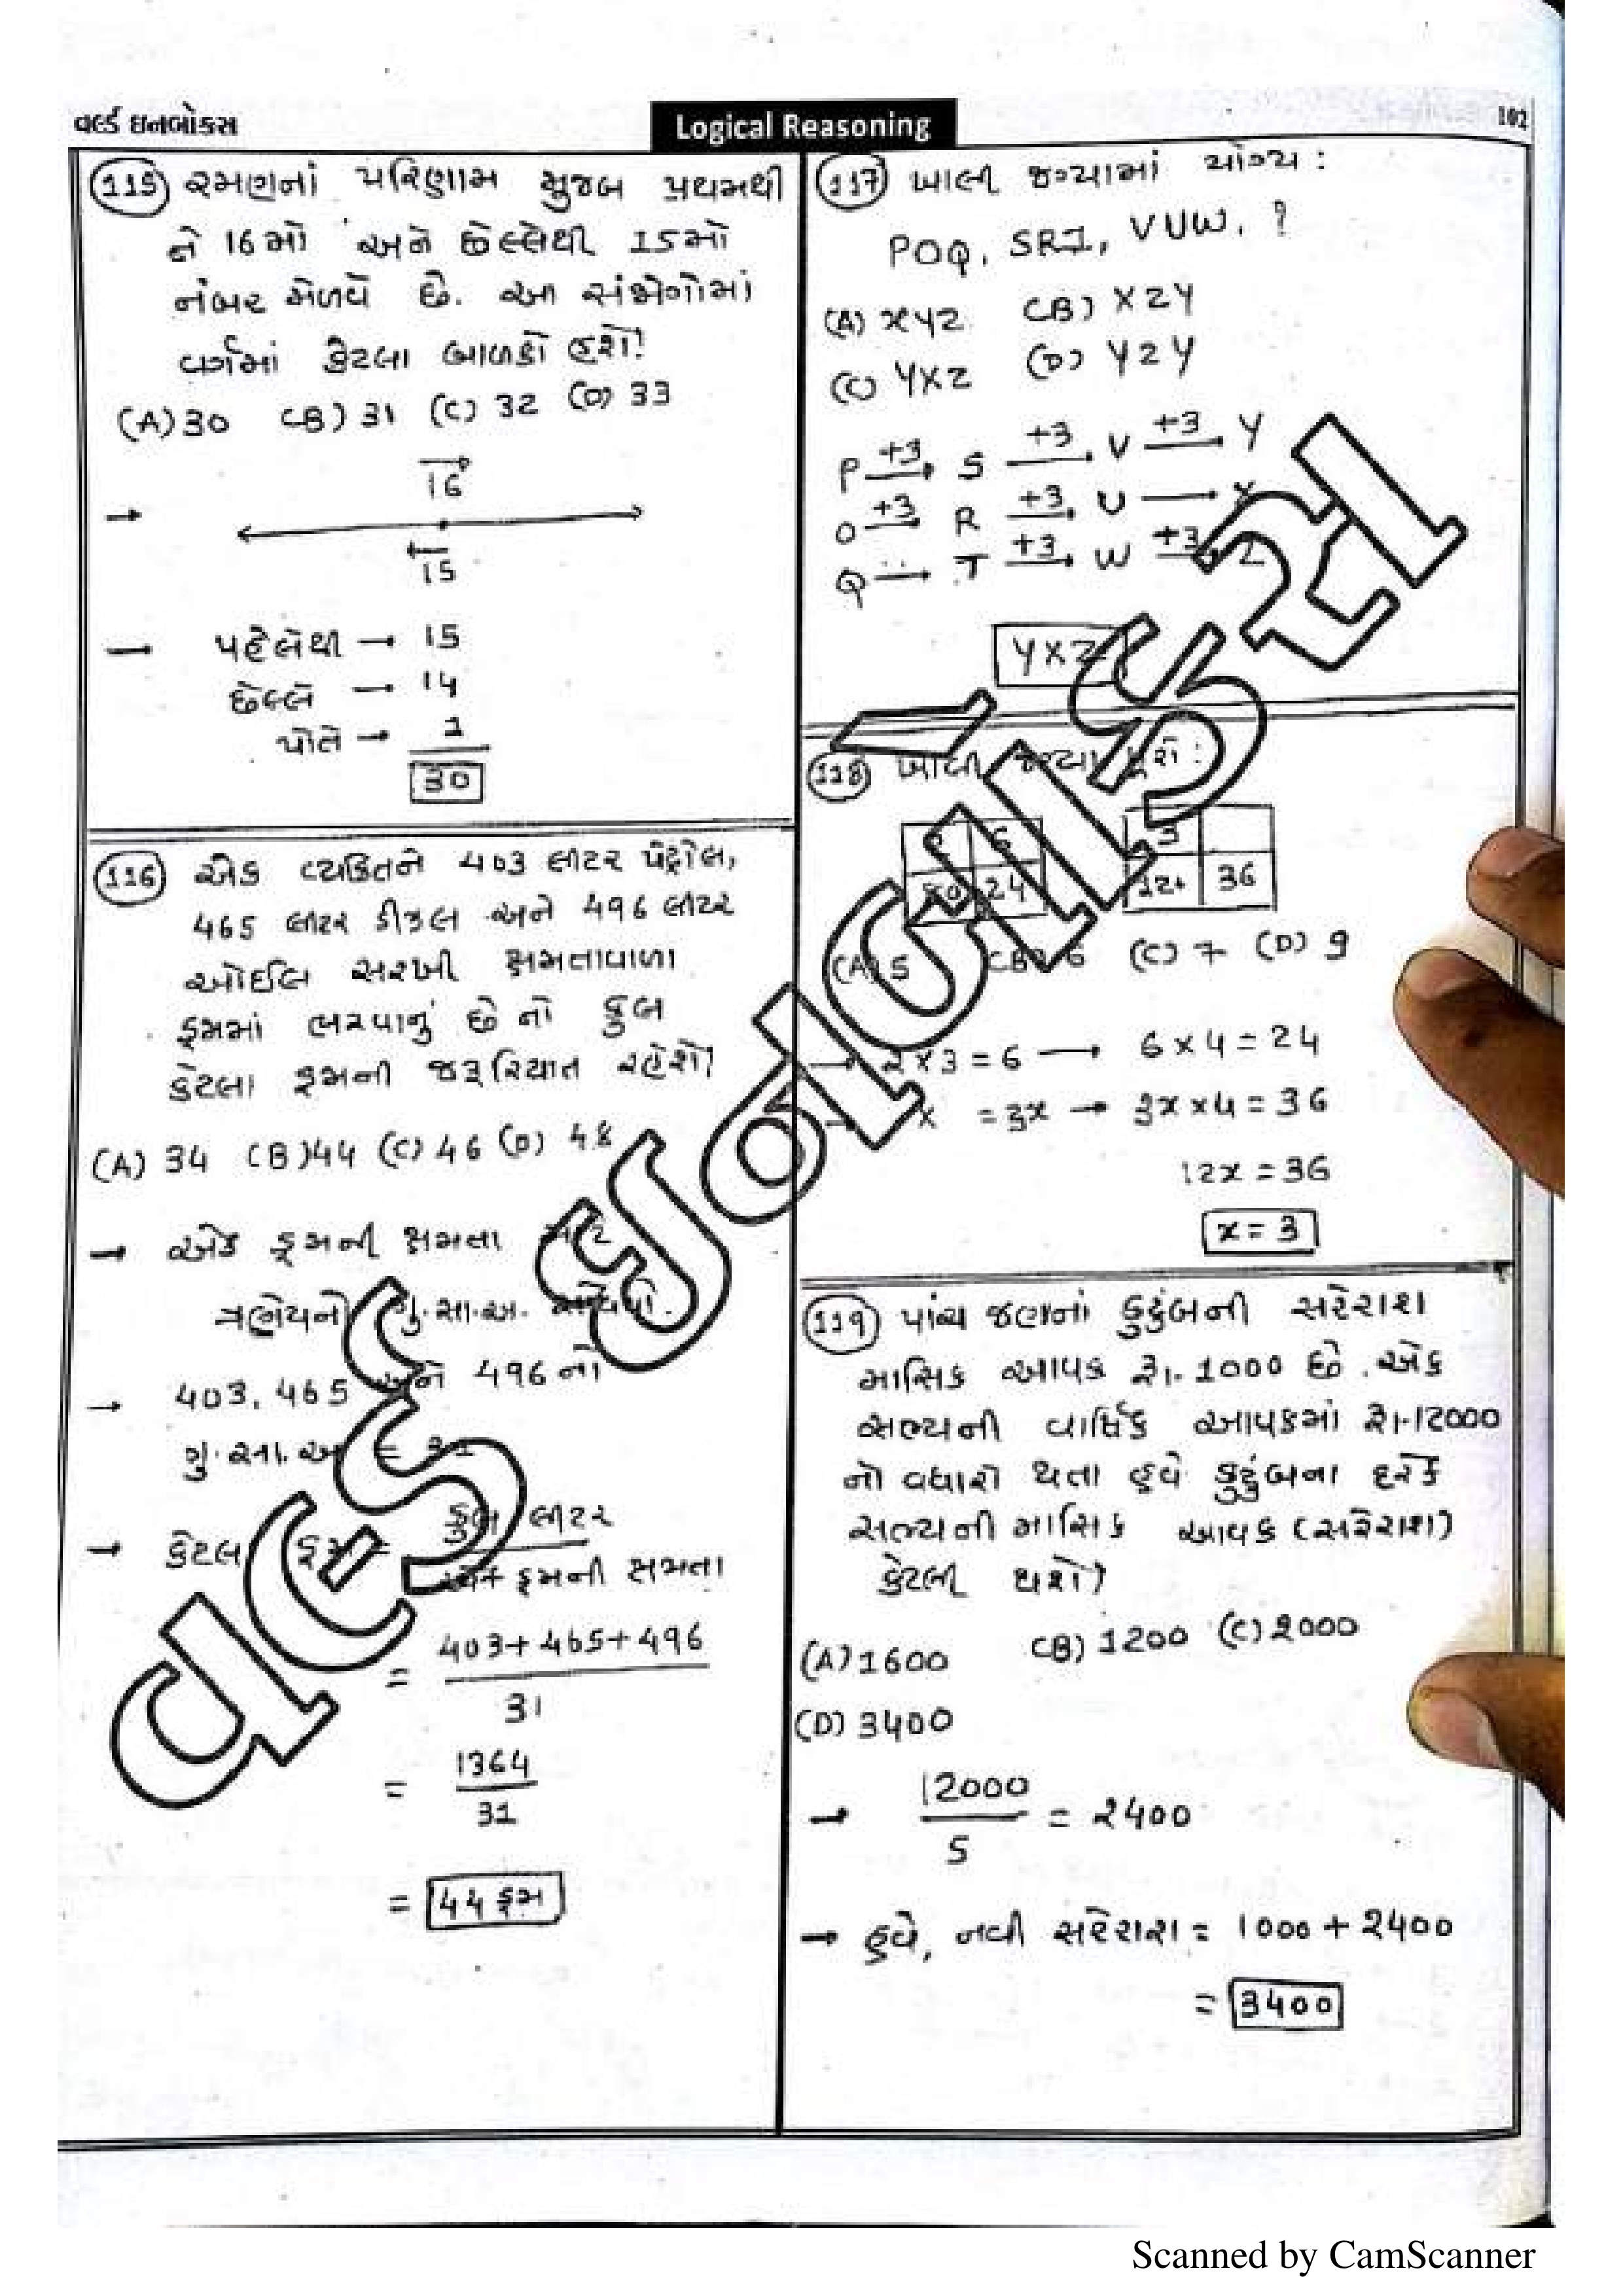 વર્લ્ડ ઇનબોક્સ
Logical Reasoning
102
115 રમણનાં પરિણામ મુજબ પ્રથમથી
ને 16મો અને છેલ્લેથી 15મો
નંબર મેળવે છે. આ સંજોગોમાં
વર્ગમાં કેટલા બાળકો હશે?
(A) 30 (B) 31 (C) 32 (D) 33
→ 16
15
— પહેલેથી → 15
છેલ્લે → 14
પોતે → 1
30
116 એક વ્યકિતને 403 લીટર પેટ્રોલ,
465 લીટર ડીઝલ અને 496 લીટર
ઓઈલ સરખી ક્ષમતાવાળા
ડ્રમમાં ભરવાનું છે તો કુલ
કેટલા ડ્રમની જરૂરિયાત રહેશે?
(A) 34 (B) 44 (C) 46 (D) 48
→ એક ડ્રમની ક્ષમતા
ત્રણેયનો ગુ.સા.અ.
→ 403, 465 અને 496 નો
ગુ.સા.અ = 31
→ કેટલા ડ્રમ = કુલ લીટર
એક ડ્રમની ક્ષમતા
= 403+465+496
31
= 1364
31
= 44 ડ્રમ
117 ખાલી જગ્યામાં યોગ્ય :
POQ, SRT, VUW, ?
(A) XYZ (B) XZY
(C) YXZ (D) YZY
P +3→ S +3→ V +3→ Y
O +3→ R +3→ U → X
Q → T +3→ W +3→ Z
YXZ
118 ખાલી જગ્યા પૂરો :
6
24
3
12x 36
(A) 5 (B) 6 (C) 7 (D) 9
→ 2×3=6 → 6×4=24
→ x =3x → 3x×4=36
12x=36
x=3
119 પાંચ જણનાં કુટુંબની સરેરાશ
માસિક આવક રૂા. 1000 છે. એક
સભ્યની વાર્ષિક આવકમાં રૂા.12000
નો વધારો થતા હવે કુટુંબના દરેક
સભ્યની માસિક આવક (સરેરાશ)
કેટલી થશે?
(A) 1600 (B) 1200 (C) 2000
(D) 3400
→ 12000
5
= 2400
→ હવે, નવી સરેરાશ = 1000+2400
= 3400
Scanned by CamScanner